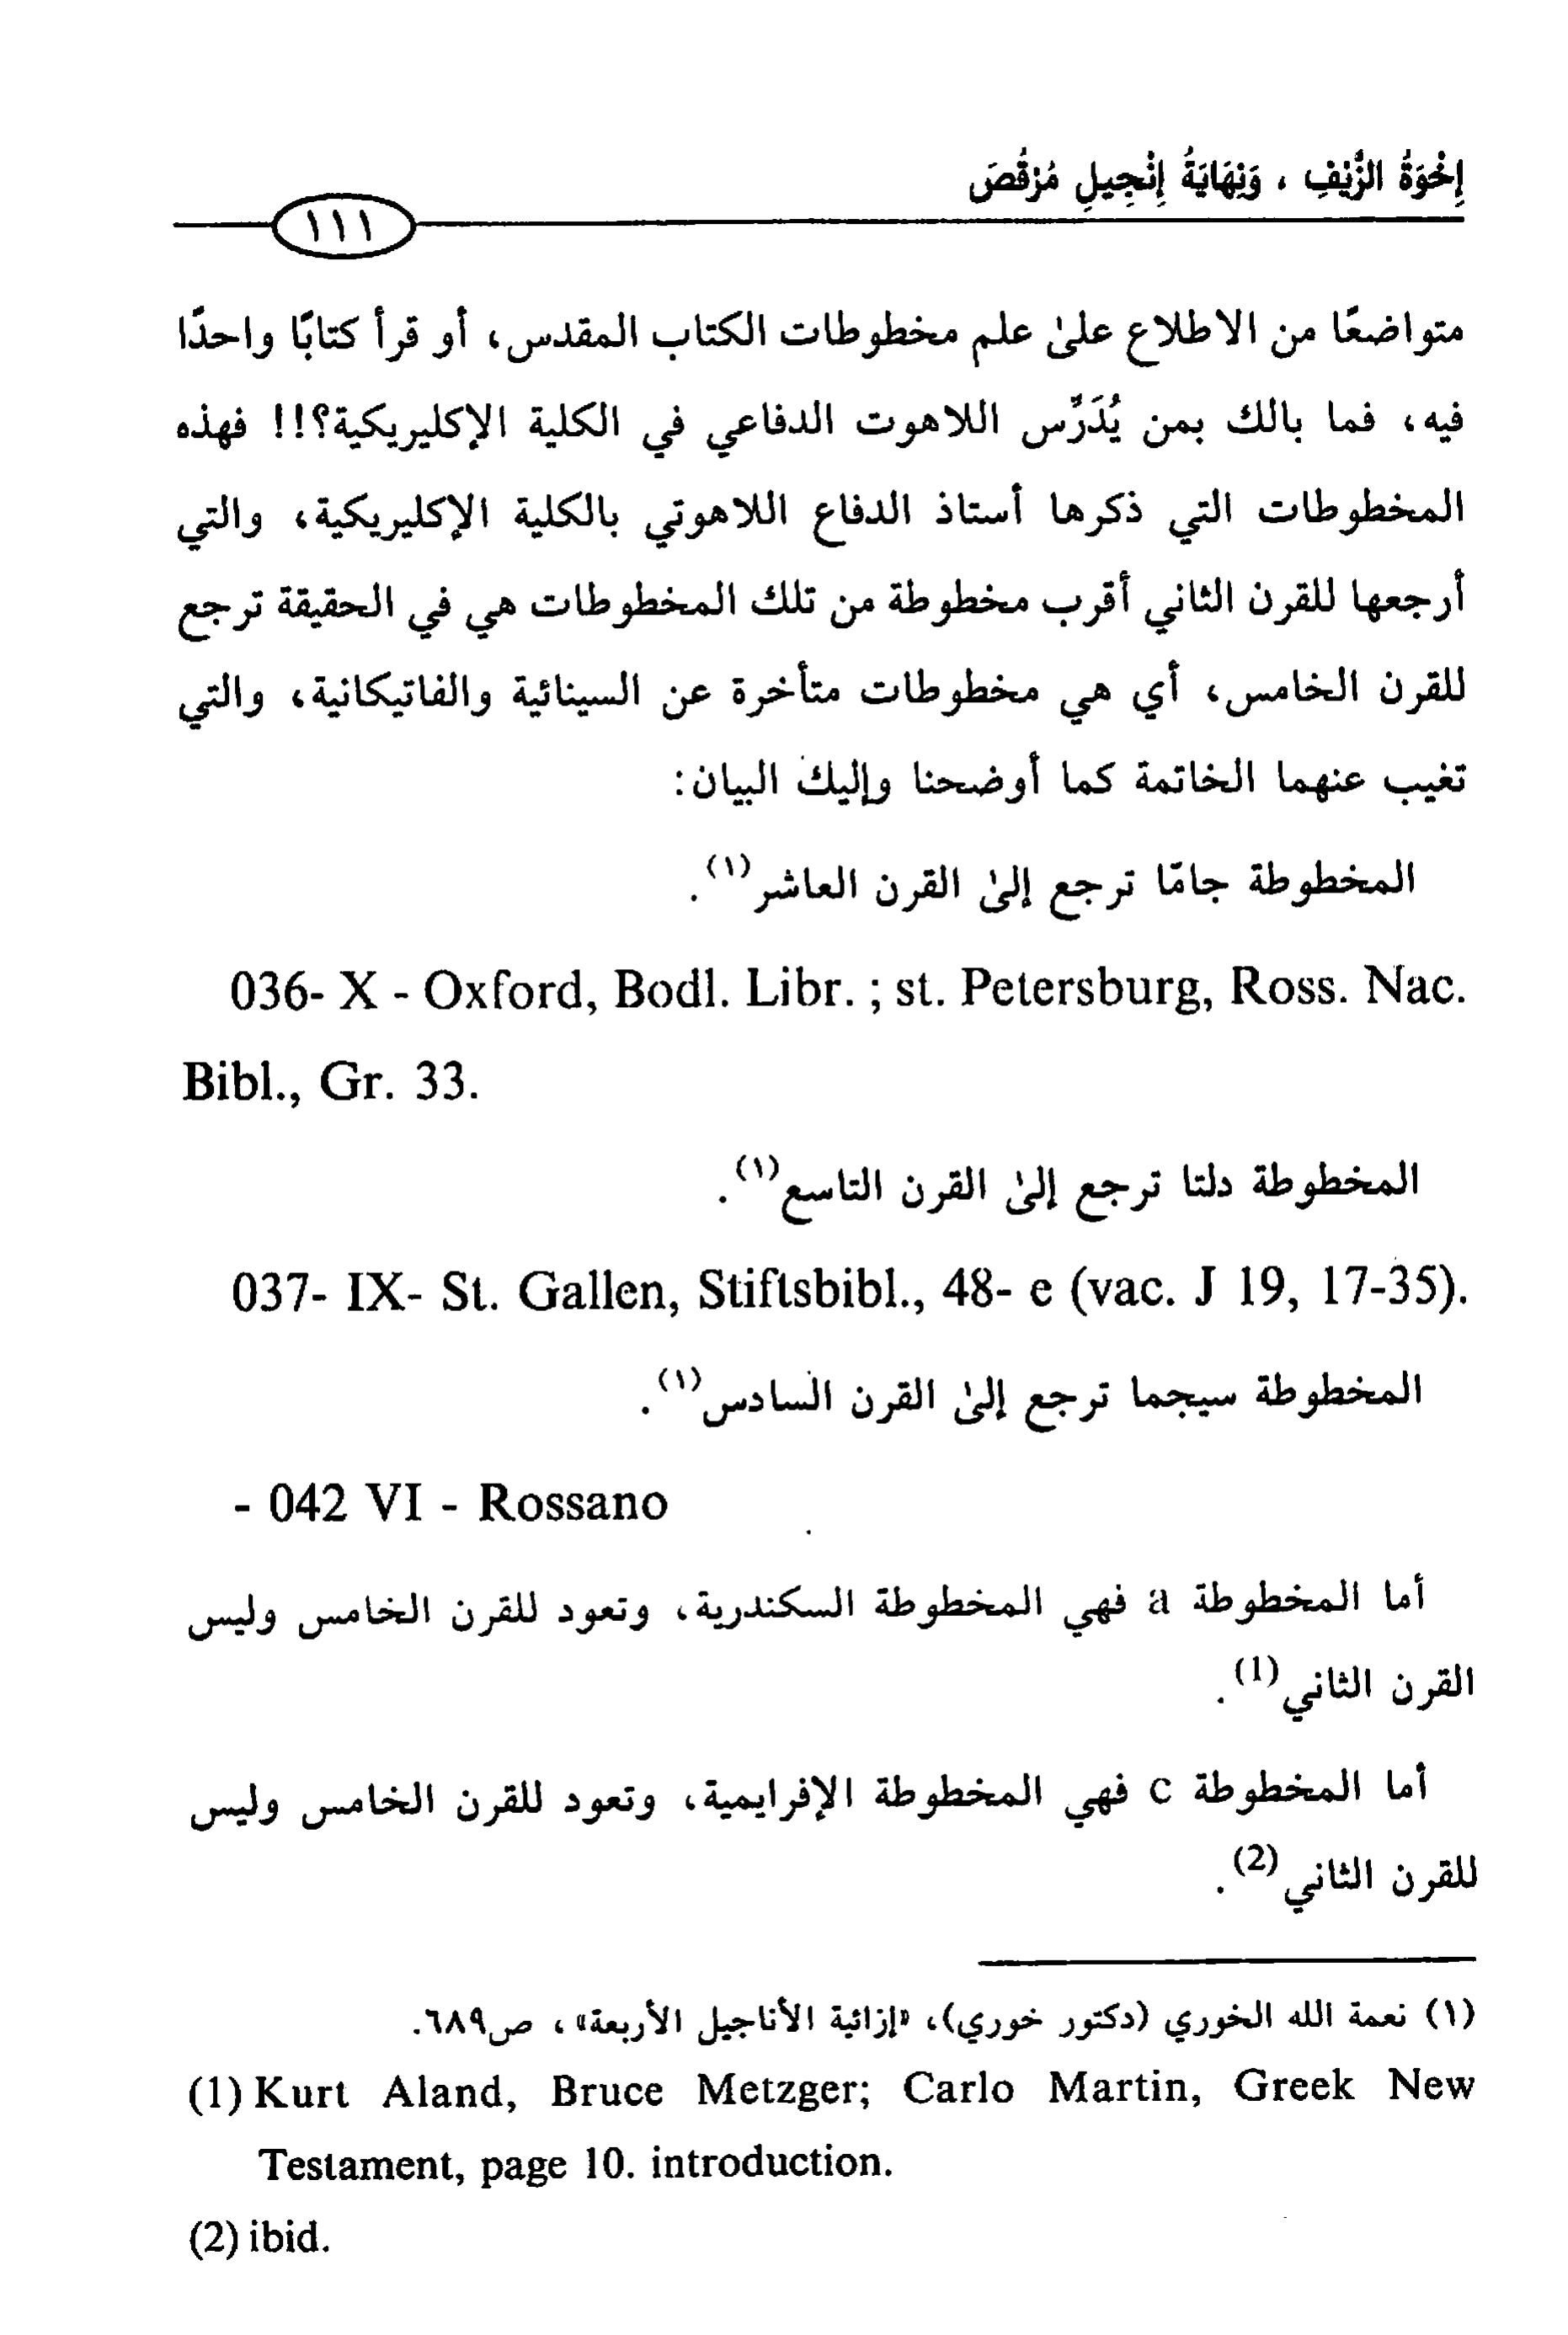 إِخْوَةُ الزَّيْفِ ، وَنِهَايَةُ إِنْجِيلِ مُرْقُصَ
١١١
متواضعًا من الاطلاع علىٰ علم مخطوطات الكتاب المقدس، أو قرأ كتابًا واحدًا
فيه، فما بالك بمن يُدَرِّس اللاهوت الدفاعي في الكلية الإكليريكية؟!! فهذه
المخطوطات التي ذكرها أستاذ الدفاع اللاهوتي بالكلية الإكليريكية، والتي
أرجعها للقرن الثاني أقرب مخطوطة من تلك المخطوطات هي في الحقيقة ترجع
للقرن الخامس، أي هي مخطوطات متأخرة عن السينائية والفاتيكانية، والتي
تغيب عنهما الخاتمة كما أوضحنا وإليك البيان:
المخطوطة جامّا ترجع إلىٰ القرن العاشر(١).
036- X - Oxford, Bodl. Libr. ; st. Petersburg, Ross. Nac.
Bibl., Gr. 33.
المخطوطة دلتا ترجع إلىٰ القرن التاسع(١).
037- IX- St. Gallen, Stiftsbibl., 48- e (vac. J 19, 17-35).
المخطوطة سيجما ترجع إلىٰ القرن السادس(١).
- 042 VI - Rossano
أما المخطوطة a فهي المخطوطة السكندرية، وتعود للقرن الخامس وليس
القرن الثاني(1).
أما المخطوطة c فهي المخطوطة الإفرايمية، وتعود للقرن الخامس وليس
للقرن الثاني(2).
(١) نعمة الله الخوري (دكتور خوري)، «إزائية الأناجيل الأربعة»، ص٦٨٩.
(1) Kurt Aland, Bruce Metzger; Carlo Martin, Greek New
Testament, page 10. introduction.
(2) ibid.